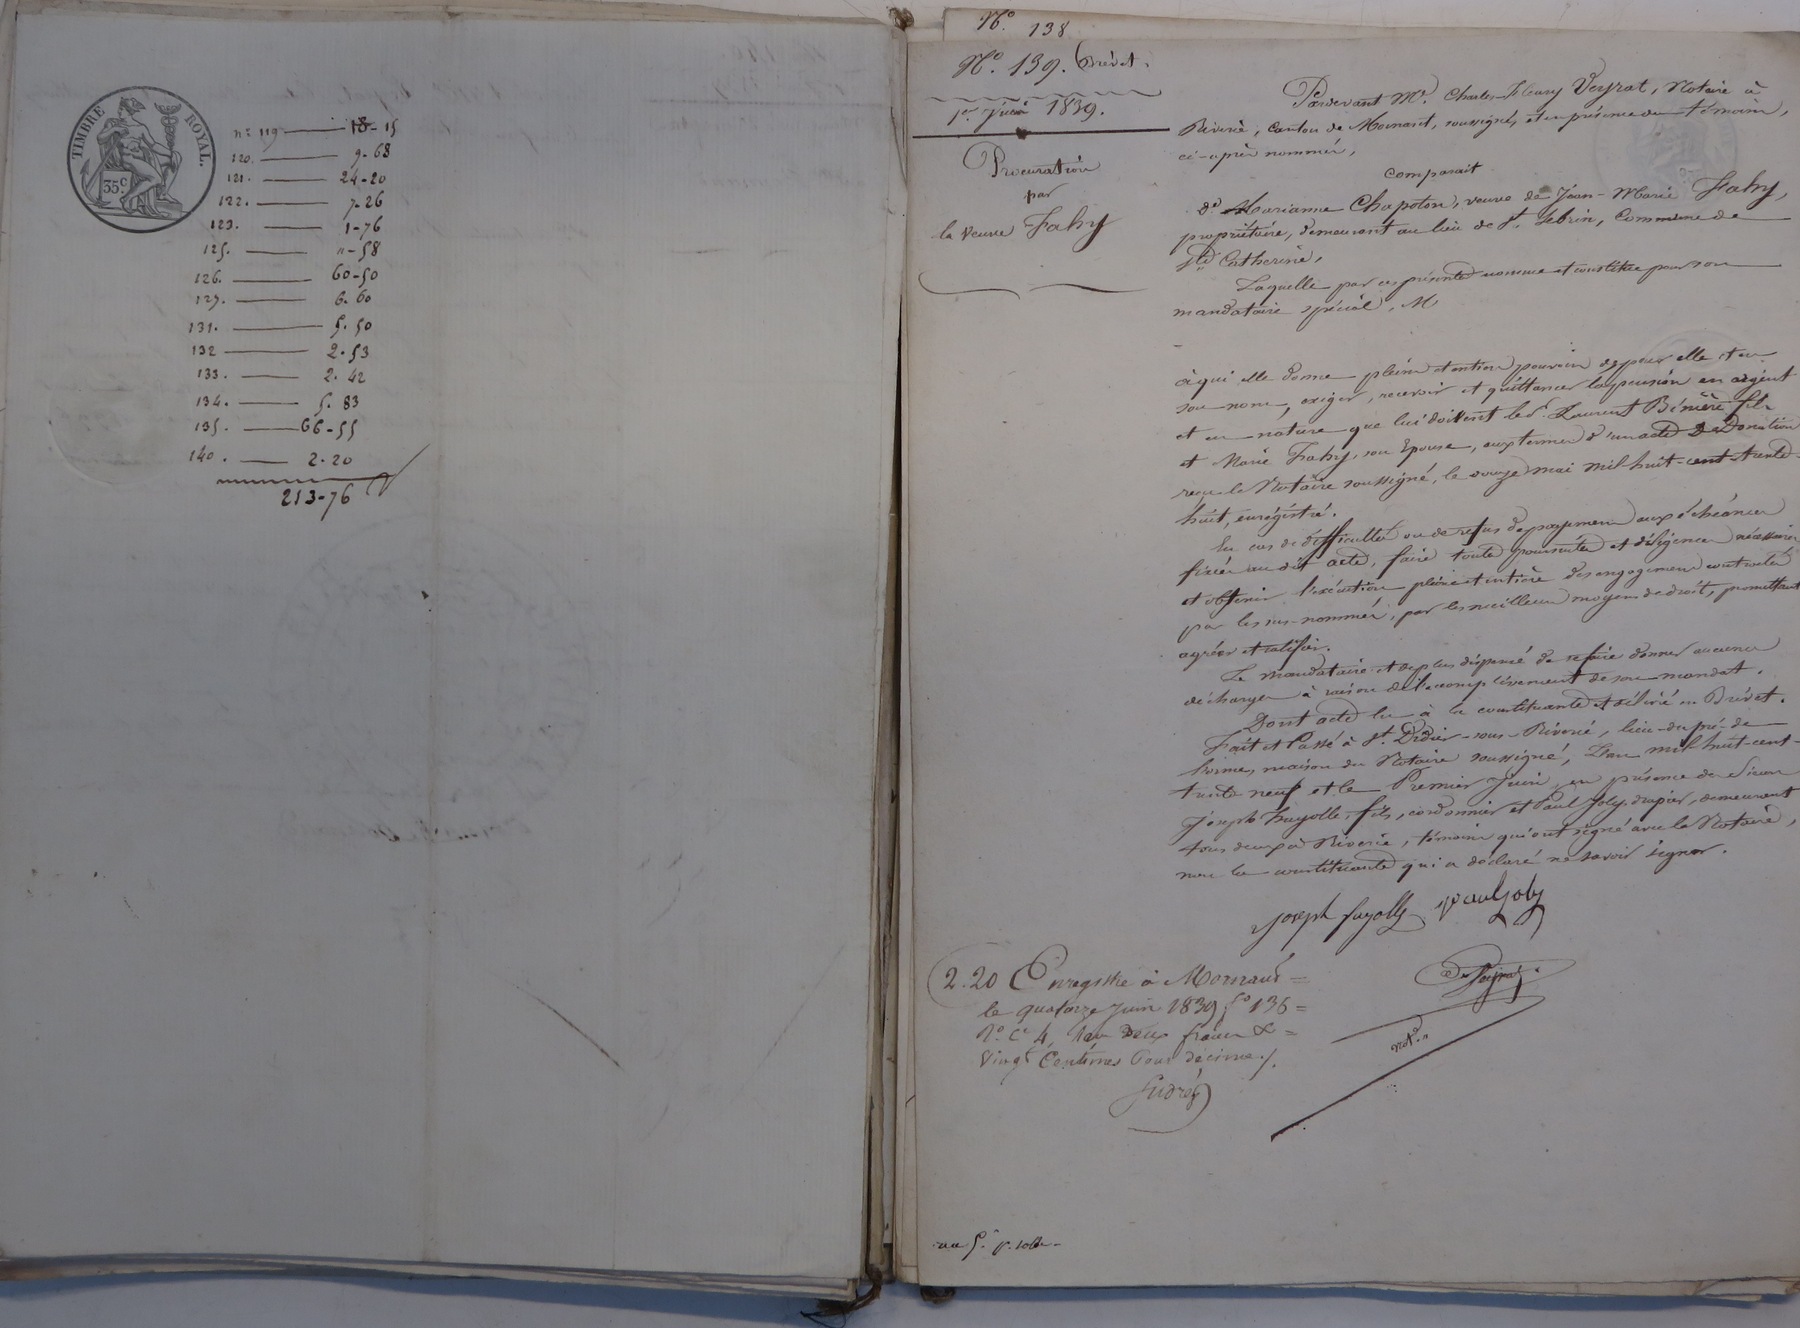 TIMBRE ROYAL.
35c.
nos 119 — 18-15
120. — 9-68
121. — 24-20
122. — 7-26
123. — 1-76
125. — "-58
126. — 60-50
127. — 6.60
131. — 5.50
132 — 2.53
133. — 2.42
134. — 5.83
135. — 66-55
140. — 2.20
213-76
No. 138
No. 139. Brévet.
1er Juin 1839.
Procuration
par
la veuve Fahy
Pardevant Me. Charles-Fleury Veyrat, Notaire à
Riverie, Canton de Mornant, soussigné, et en présence des témoins,
ci-après nommés,
comparait
De. Marianne Chapoton, veuve de Jean-Marie Fahy,
propriétaire, demeurant au lieu de St. Sebrin, Commune de
Ste Catherine,
Laquelle par ces présentes nomme et constitue pour son
mandataire spécial, M
à qui elle donne plein et entier pouvoir de pour elle et en
son nom, exiger, recevoir et quittancer la pension en argent
et en nature que lui doivent le sr. Laurent Bénière fils
et Marie Fahy, son Epouse, aux termes d'un acte de Donation
reçu le Notaire soussigné, le douze mai mil-huit-cent-trente-
huit, enrégistré.
En cas de difficultés ou de refus de payement aux échéances
fixées au dit acte, faire toutes poursuites et diligences nécéssaires
et obtenir l'exécution pleine et entière des engagemens contractés
par les sus-nommés, par les meilleurs moyens de droit, promettant
agréer et ratifier.
Le mandataire est de plus dispensé de se faire donner aucune
décharge à raison de l'accomplissement de son mandat.
Dont acte lu à la constituante et délivré en Brévet.
Fait et Passé à St. Didier-sous-Riverie, lieu-du pré-de
horme, maison du Notaire soussigné, L'an mil-huit-cent-
trente neuf et le Premier Juin, en présence de Simon
Joseph Fayolle, fils, cordonnier et Paul Joly, drapier, demeurant
tous deux à Riverie, témoins qui ont signé avec le Notaire,
non la constituante qui a déclaré ne savoir signer.
Joseph fayolle Paul Joly
Veyrat
not.re
2.20 Enregistré à Mornant =
le quatorze Juin 1839 fo 136 =
Vo. Ce 4, reçu Deux francs & =
Vingt Centimes pour décime./.